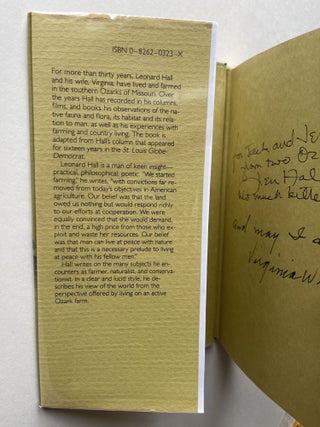 ISBN 0-8262-0323-X
For more than thirty years, Leonard Hall
and his wife, Virginia, have lived and farmed
in the southern Ozarks of Missouri. Over
the years Hall has recorded in his columns,
films, and books his observations of the na-
tive fauna and flora, its habitat and its relation
to man, as well as his experiences with
farming and country living. The book is
adapted from Hall's column that appeared
for sixteen years in the St. Louis Globe-
Democrat.
Leonard Hall is a man of keen insight—
practical, philosophical, poetic. "We started
farming," he writes, "with convictions far re-
moved from today's objectives in American
agriculture. Our belief was that the land
owed us nothing but would respond richly
to our efforts at cooperation. We were
equally convinced that she would demand,
in the end, a high price from those who ex-
ploit and waste her resources. Our belief
was that man can live at peace with nature
and that this is a necessary prelude to living
at peace with his fellow men."
Hall writes on the many subjects he en-
counters as farmer, naturalist, and conserva-
tionist. In a clear and lucid style, he de-
scribes his view of the world from the
perspective offered by living on an active
Ozark farm.
for Jack and
from two
Len Hal
not much
and may I a
Virginia W